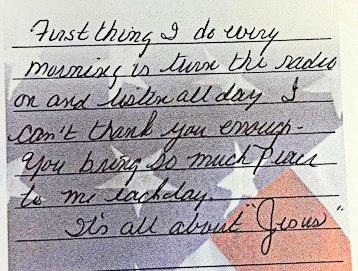 First thing I do every
morning is turn the radio
on and listen all day I
can't thank you enough-
You bring so much Peace
to me each day.
It's all about "Jesus"